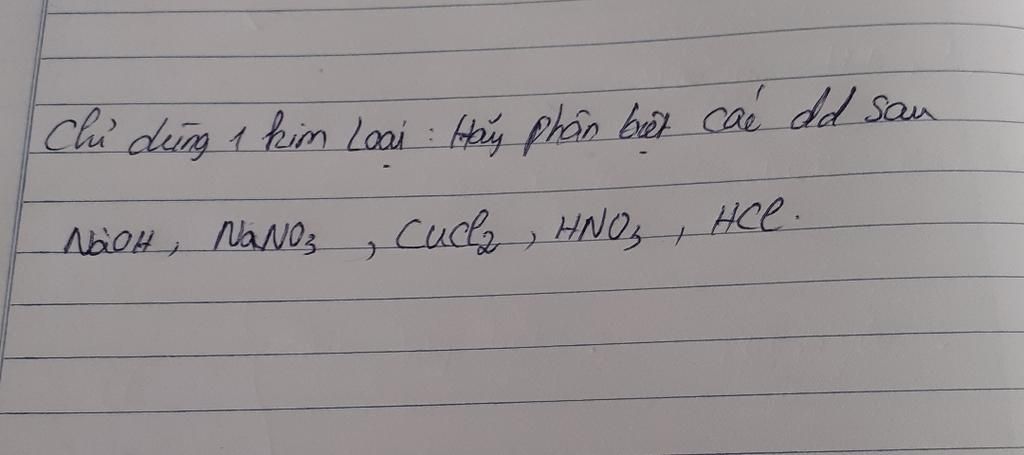 Chỉ dùng 1 kim Loại : Hãy phân biệt các dd sau
NaOH, NaNO3, CuCl2, HNO3, HCl.